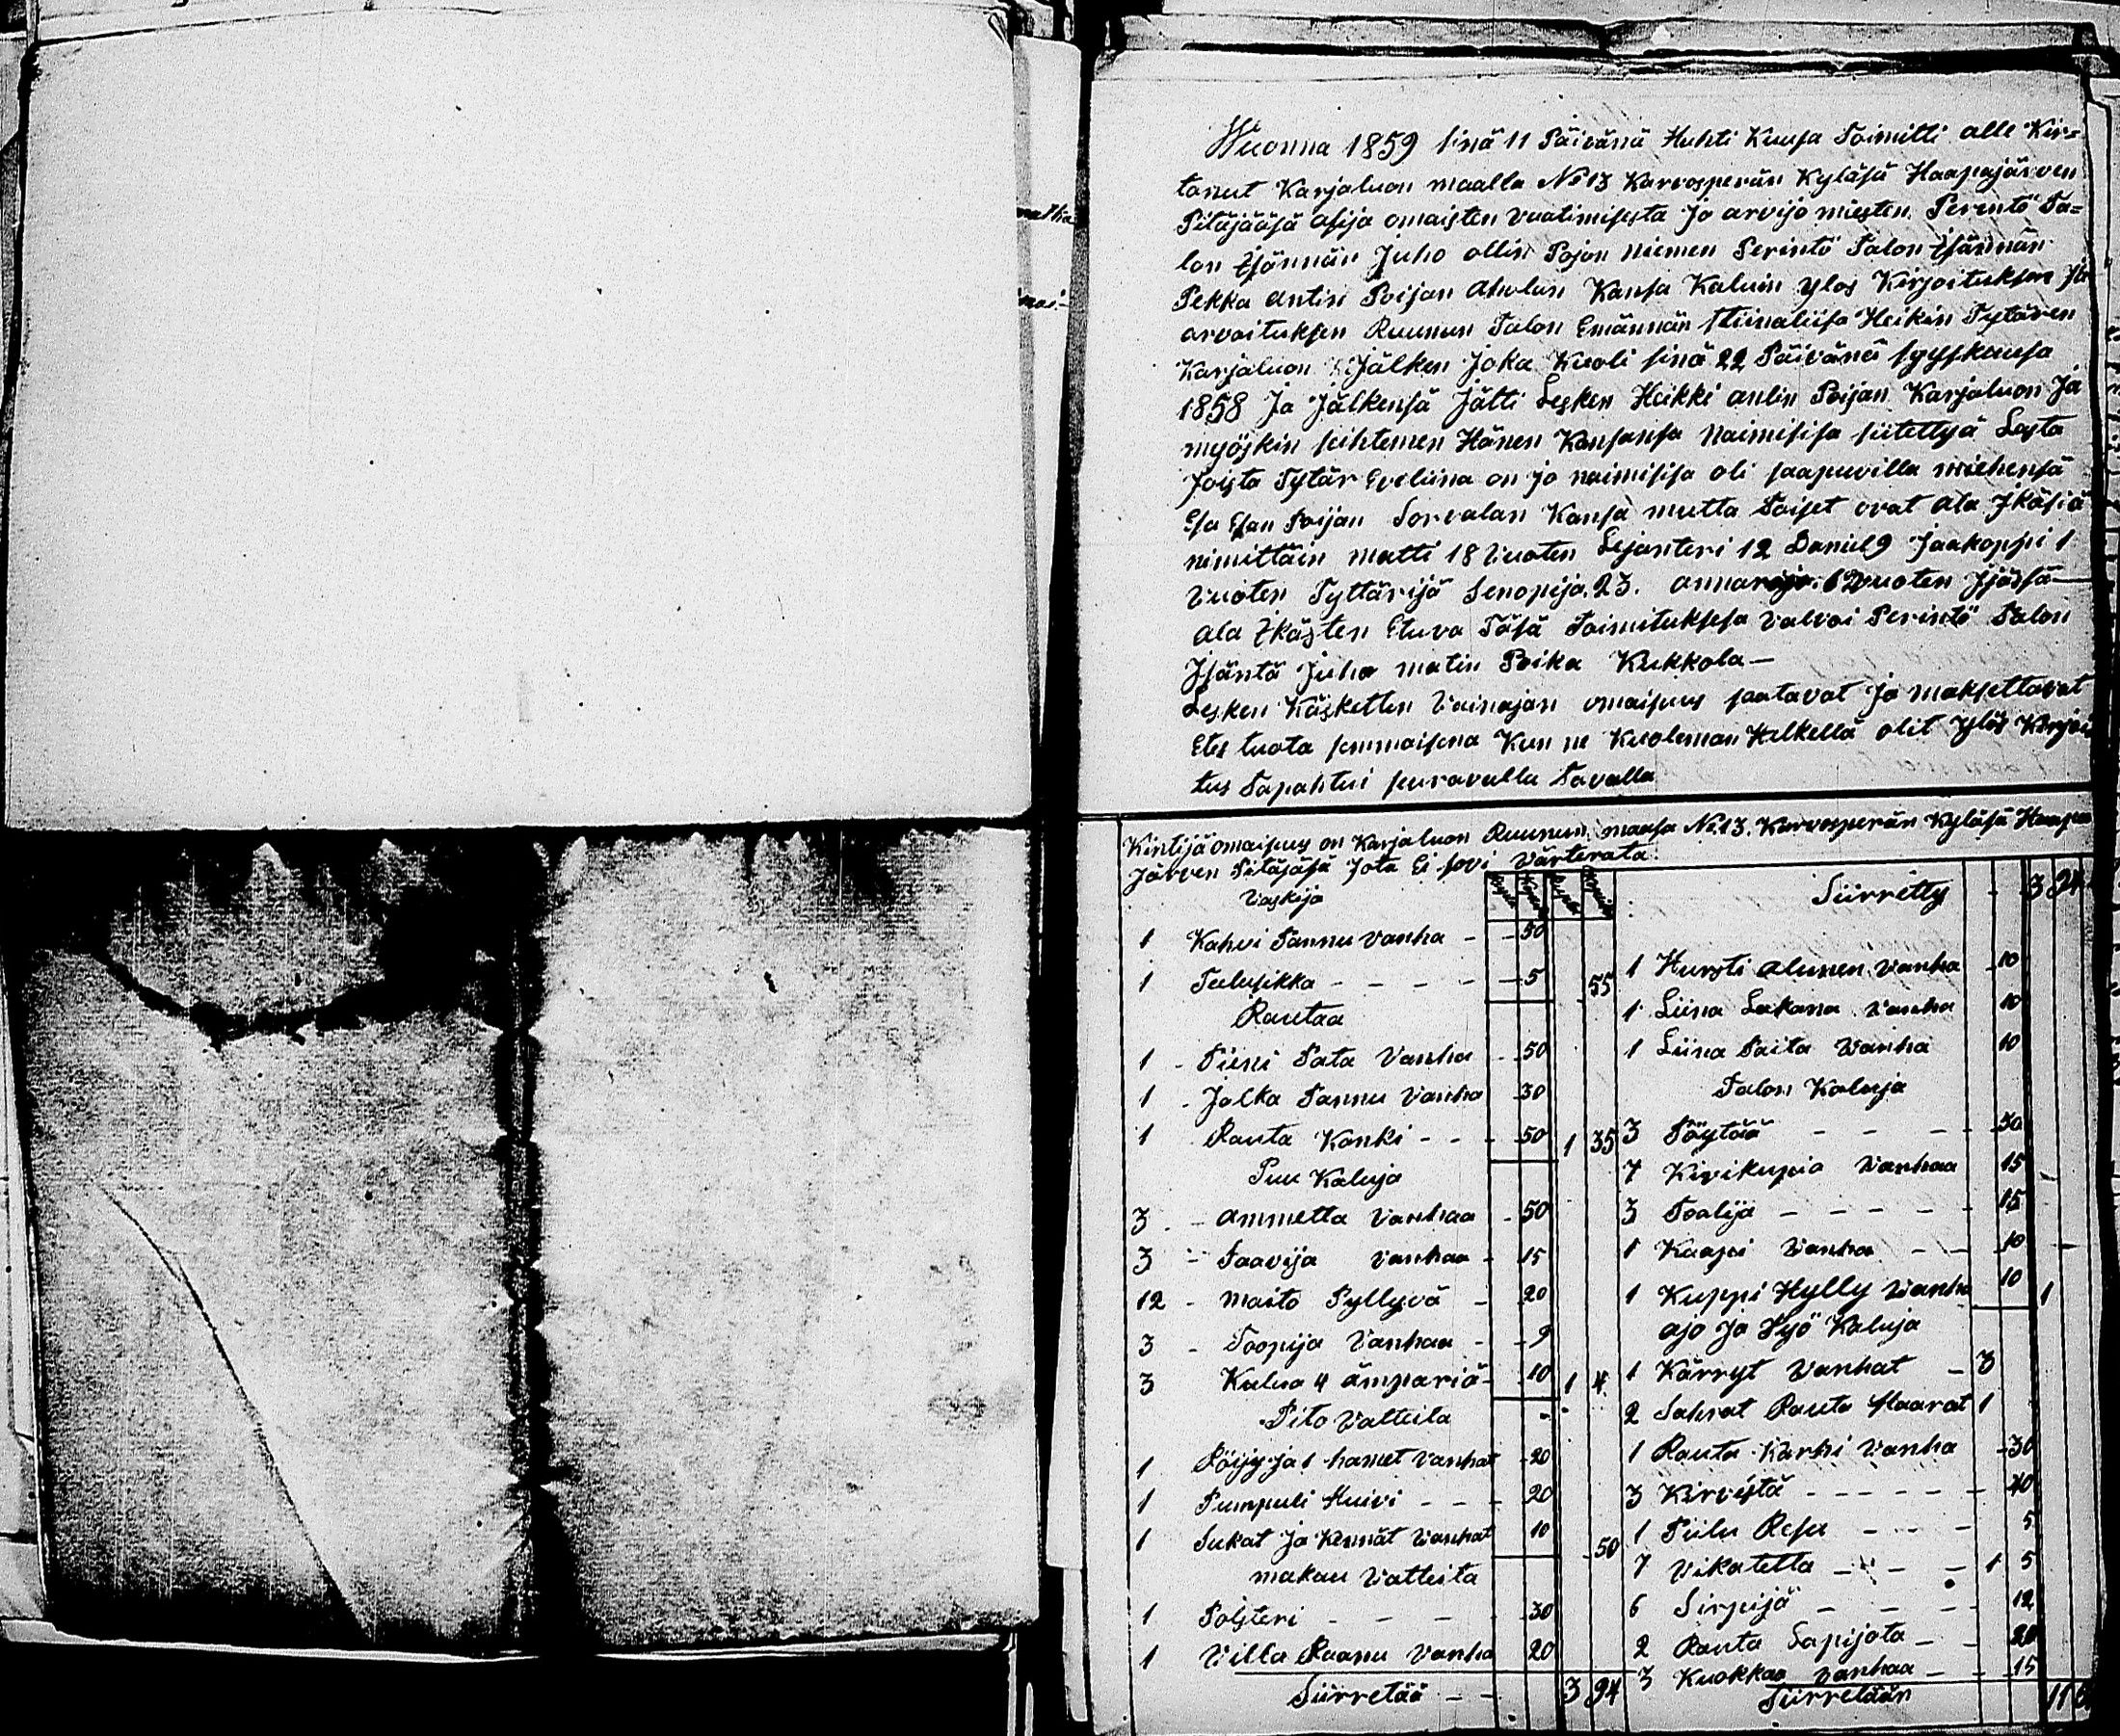 Wuonna 1859 sinä 11 Päivänä Huhti Kuusa Toimitti alle Kir=
tanut Karjaluon maalla No 13 Karvosperän Kyläsä Haapajärven
Pitäjääsä asija omaisten vaatimisesta Ja arvijo miesten Perintö Ta=
lon Isännän Juho ollin Pojan Niemen Perintö Talon Isännän
Pekka Antin Poijan Aholan Kansa Kaluin ylos Kirjoituksen ja
arvoituksen Ruunun Talon Emännän Stiinaliisa Heikin Tytären
Karjaluon Jälken Joka Kuoli sinä 22 Päivänä syyskuusa
1858 Ja Jälkensä Jätti Lesken Heikki antin Poijan Karjaluon Ja
myöskin seihtemen Hänen Kansansa Naimisisa siitettyä Lasta
Joista Tytär Eveliina on jo naimisisa oli saapuvilla miehensä
Esa Esan Poijan Sorvalan Kansa mutta Toiset ovat ala Ikäsiä
nimittäin matti 18 Vuoten Lejanteri 12 Daniel 9 Jaakoppi 1
Vuoten Tyttärijä Senopija 23. anna 6 Vuoten Ijäsä
ala Ikästen Etuva Täsä Toimituksesa valvoi Perintö Talon
Isäntä Juho matin Poika Kukkola —
Lesken Käskettin Vainajan omaisuus saatavat Ja maksettavat
Etes tuota semmaisena Kun ne Kuoleman Hetkellä olit ylös Kirjoi
tus Tapahtui seuravalla Tavalla
Kintijä omaisuus on Karjaluon Ruunun maasa No 13. Karvosperän Kyläsä Haapa
Järven Pitäjäsä Jota Ei sovi Värterata
Vaskija
1 Kahvi Pannu vanha - 50
1 Tulusikka - - - - 5 55
Rautaa
1 - Piini Pata Vanha - 50
1 - Jalka Pannu Vanha 30
1 Rauta Kanki - - 50 1 35
Puu Kaluja
3 - ammetta Vanhaa - 50
3 - Saavija Vanhaa - 15
12 - maito Pyttyvä - 20
3 - Toopija Vanhaa - 9
3 Kulua 4 ämpäriä - 10 1 4
Pito Vatteita
1 Röijy ja 1 hamet Vanhat 20
1 Pumpuli Huivi - - - 20
1 Sukat Ja Kennät Vanhat 10 50
makau Vatteita
1 Polsteri - - - - 30
1 Villa Raanu Vanha 20
Siirretää - - 3 94
Siirretty - 3 94
1 Hursti alunen Vanha 10
1 Liina Lakana Vanha 10
1 Liina Paita Vanha 10
Talon Kaluja
3 Pöytää - - - - 30
7 Kivikupia Vanhaa 15
3 Toalija - - - - - 15
1 Kaapi Vanha - - 10
1 Kuppi Hylly Vanha 10 1
ajo Ja Työ Kaluja
1 Kärryt Vanhat - 3
2 Sahrat Rauta Haarat 1
1 Rauta Karhi Vanha 30
3 Kirvestä - - - - - 40
1 Piilu - - - 5
7 Vikatetta - - - 1 5
6 Sirpijä - - - - 12
2 Rauta Lapijota - - 20
3 Kuokkaa Vanhaa - - 15
Siirretään